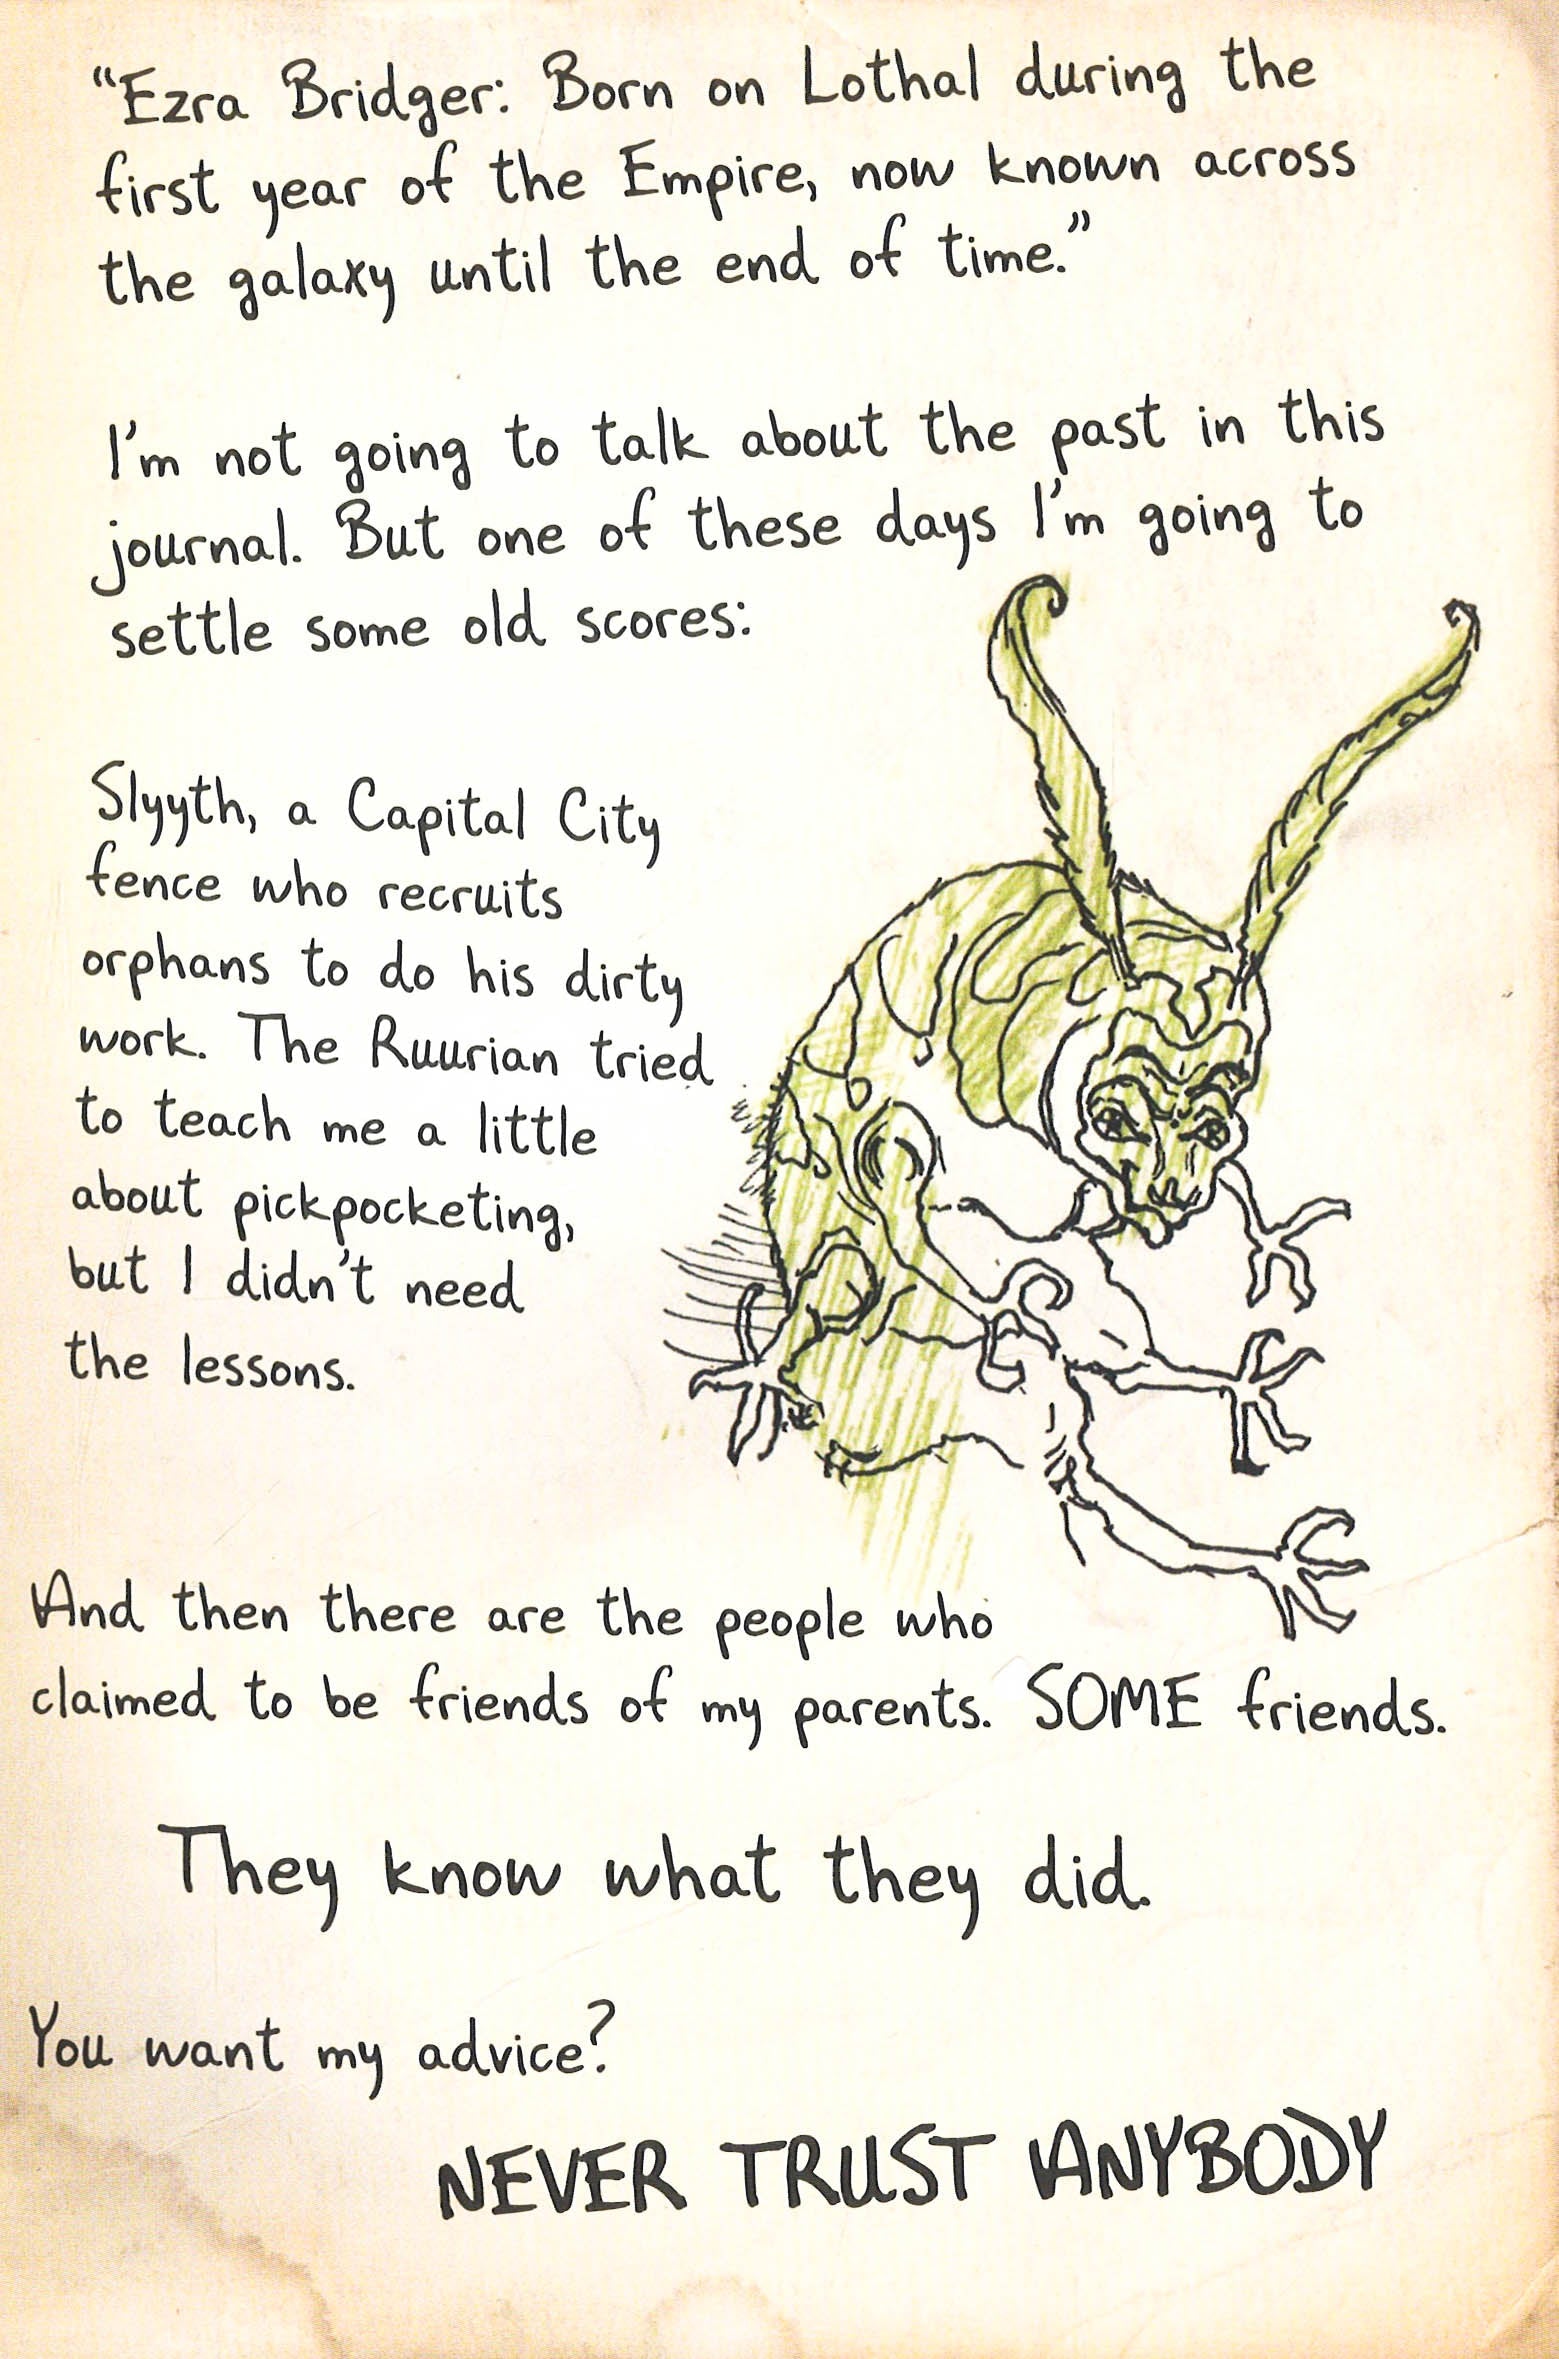 “Ezra Bridger: Born on Lothal during the
first year of the Empire, now known across
the galaxy until the end of time.”
I'm not going to talk about the past in this
journal. But one of these days I'm going to
settle some old scores:
Slyyth, a Capital City
fence who recruits
orphans to do his dirty
work. The Ruurian tried
to teach me a little
about pickpocketing,
but I didn't need
the lessons.
And then there are the people who
claimed to be friends of my parents. SOME friends.
They know what they did.
You want my advice?
NEVER TRUST ANYBODY